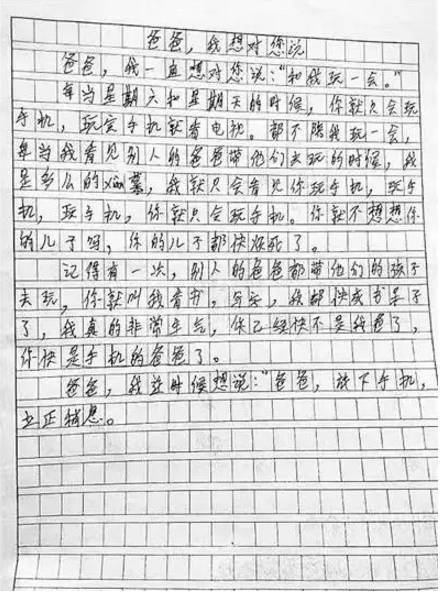 爸爸，我想对您说
爸爸，我一直想对您说："和我玩一会。"
每当星期六和星期天的时候，你就只会玩
手机，玩完手机就看电视。都不陪我玩一会，
每当我看见别人的爸爸带他们去玩的时候，我
是多么的xian慕，我就只会看见你玩手机，玩手
机，玩手机，你就只会玩手机。你就不想想你
的儿子吗，你的儿子都快烦死了。
记得有一次，别人的爸爸都带他们的孩子
去玩，你就叫我看书，写，我都快成书呆子
了，我真的非常生气，你已经快不是我爸了，
你快是手机的爸爸了。
爸爸，我这时候想说："爸爸，放下手机，
立正稍息。